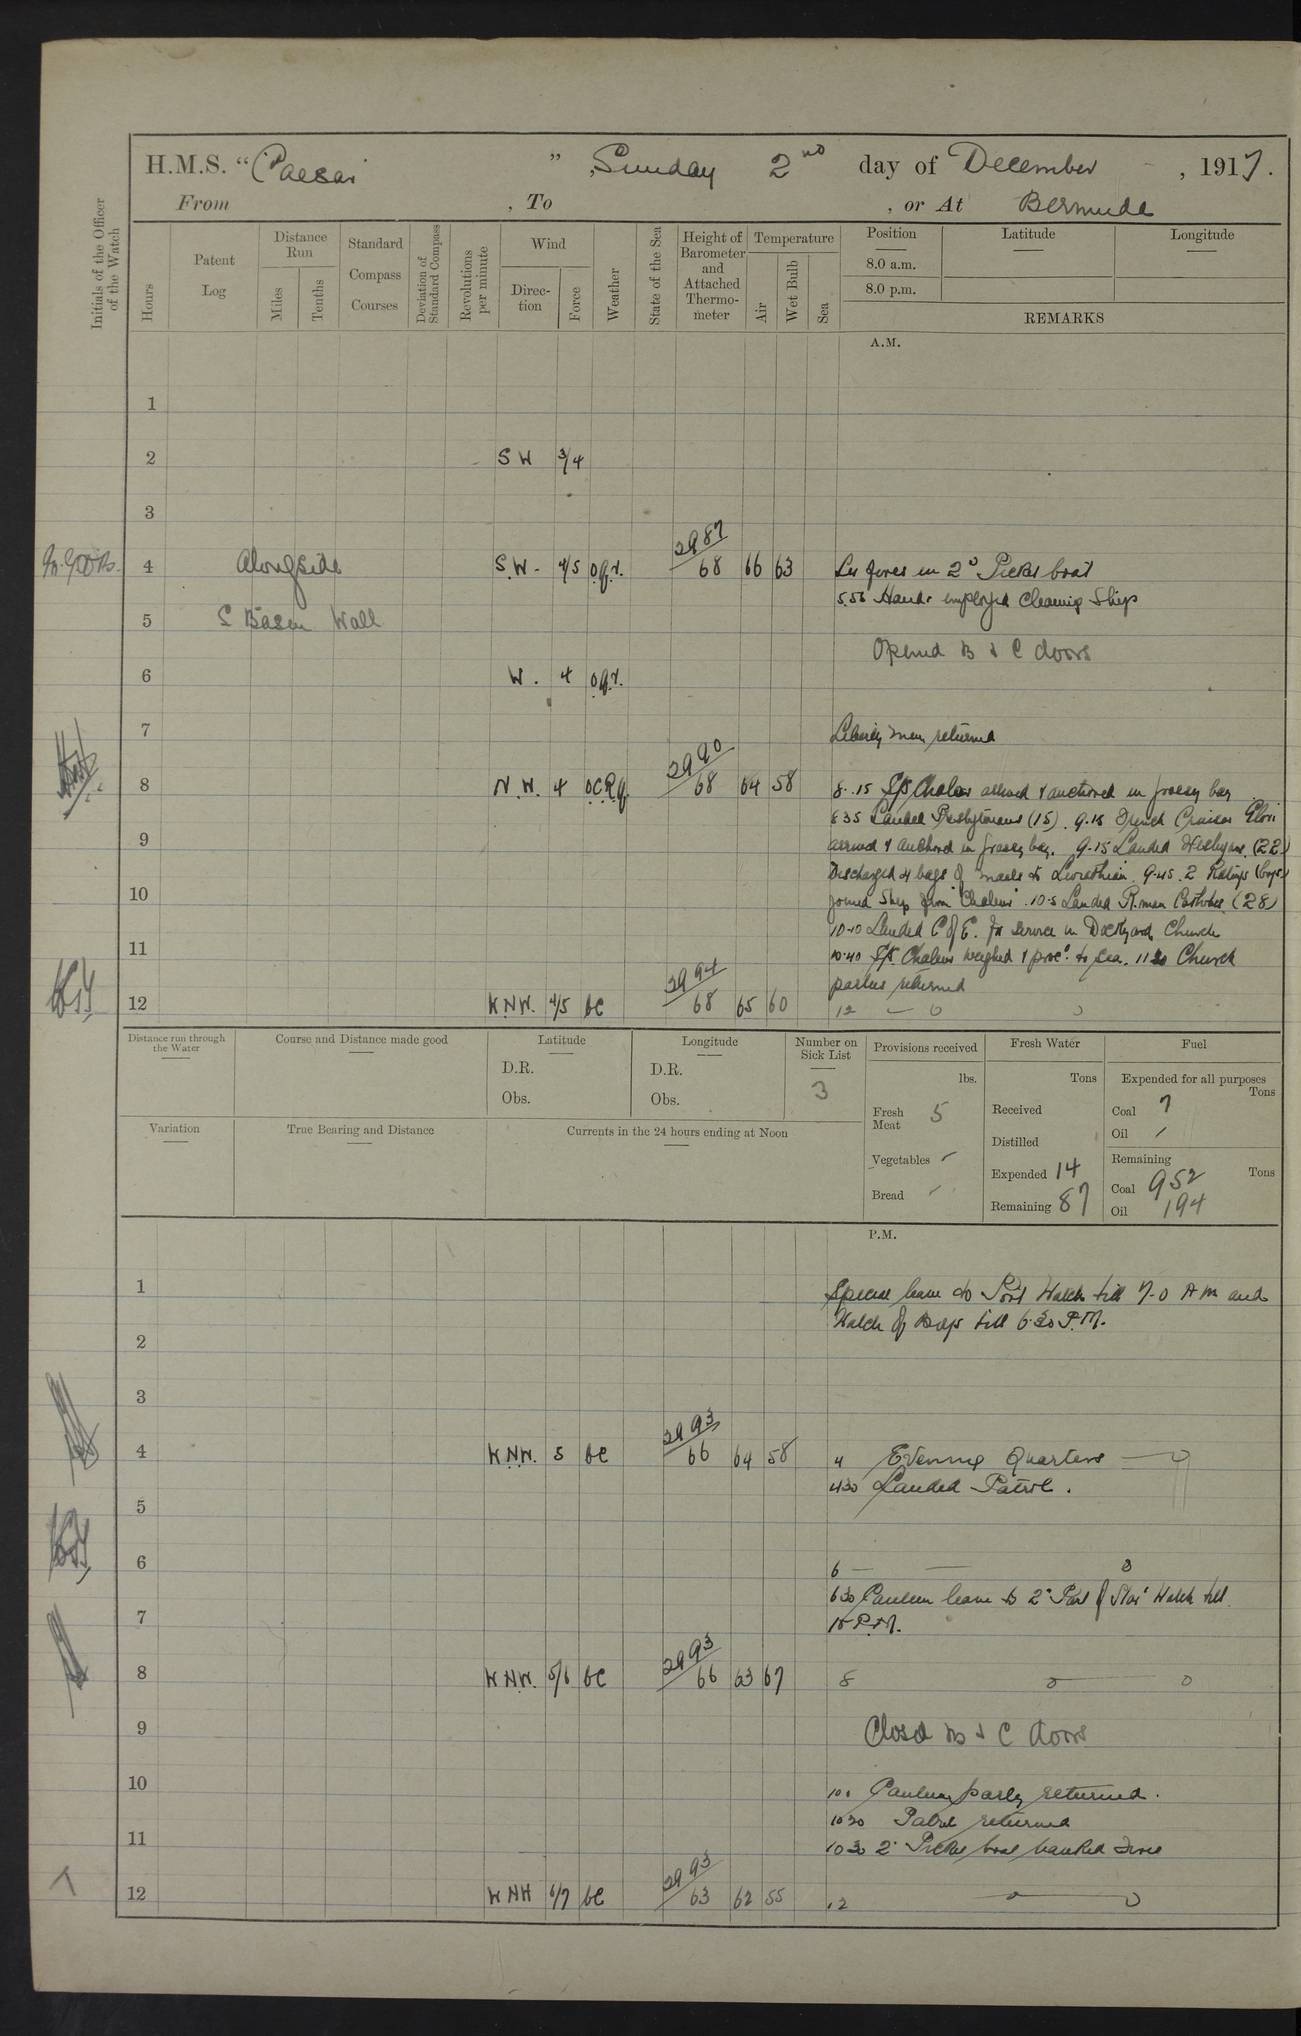 H.M.S. "Caesar", Sunday 2nd day of December, 1917.
From , To , or At Bermuda
Initials of the Officer of the Watch
Hours
Patent Log
Distance Run
Miles
Tenths
Standard Compass Courses
Deviation of Standard Compass
Revolutions per minute
Wind
Direction
Force
Weather
State of the Sea
Height of Barometer and Attached Thermometer
Temperature
Air
Wet Bulb
Sea
Position
8.0 a.m.
8.0 p.m.
Latitude
Longitude
REMARKS
A.M.
1
2 SW 3/4
3
4 Alongside S.W. 4/5 o.q.r. 29 87 68 66 63 Lit fires in 2d Picket boat
5.55 Hands employed Cleaning Ship
5 S Basin Wall
Opened B & C doors
6 W. 4 o.q.r.
7 Liberty men returned
8 N.W. 4 OCRq 29 90 68 64 58 8.15 S/S Chaleur arrived & anchored in grassy bay
8 35 Landed Presbyterians (15). 9.15 French Cruiser
9 arrived & anchored in grassy bay. 9.15 Landed Wesleyans (22)
Discharged 4 bags of mails to Leviathian. 9.45. 2 Ratings (boys)
10 joined Ship from "Chaleur". 10.5 Landed Roman Catholics (28)
10.10 Landed C of E. for service in Dockyard Church
11 10.40 S/S. Chaleur weighed & proc'd to sea. 11 30 Church
parties returned
12 WNW. 4/5 bc 29 94 68 65 60 12
Distance run through the Water
Course and Distance made good
Latitude
D.R.
Obs.
Longitude
D.R.
Obs.
Number on Sick List
3
Provisions received
lbs.
Fresh Meat 5
Vegetables -
Bread -
Fresh Water
Tons
Received
Distilled
Expended 14
Remaining 87
Fuel
Expended for all purposes
Tons
Coal 7
Oil /
Remaining
Tons
Coal 952
Oil 194
Variation
True Bearing and Distance
Currents in the 24 hours ending at Noon
P.M.
1 Special leave to Port Watch till 7.0 AM and
Watch of Boys till 6.30 P.M.
2
3
4 WNW. 5 bc 29 93 66 64 58 4 Evening Quarters
4 30 Landed Patrol.
5
6 6
6 30 Canteen leave to 2d Part of Star'd Watch till
7 10 P.M.
8 WNW. 5/6 bc 29 93 66 63 67 8
9 Closed B & C doors
10 10. Canteen party returned.
10 30 Patrol returned
11 10 30 2d Picket boat banked fires
12 WNW 6/7 bc 29 93 63 62 55 12